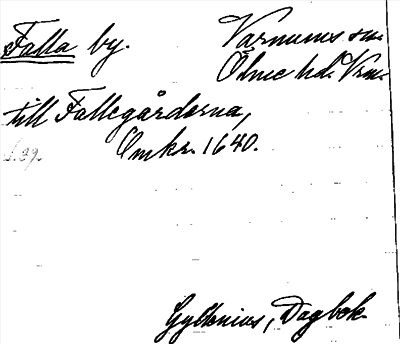 Falla by. Varnums sn.
Ölme hd. Vrm.
till Fallegårdarna,
s. 29.
Omkr. 1640.
Gyllenius, Dagbok